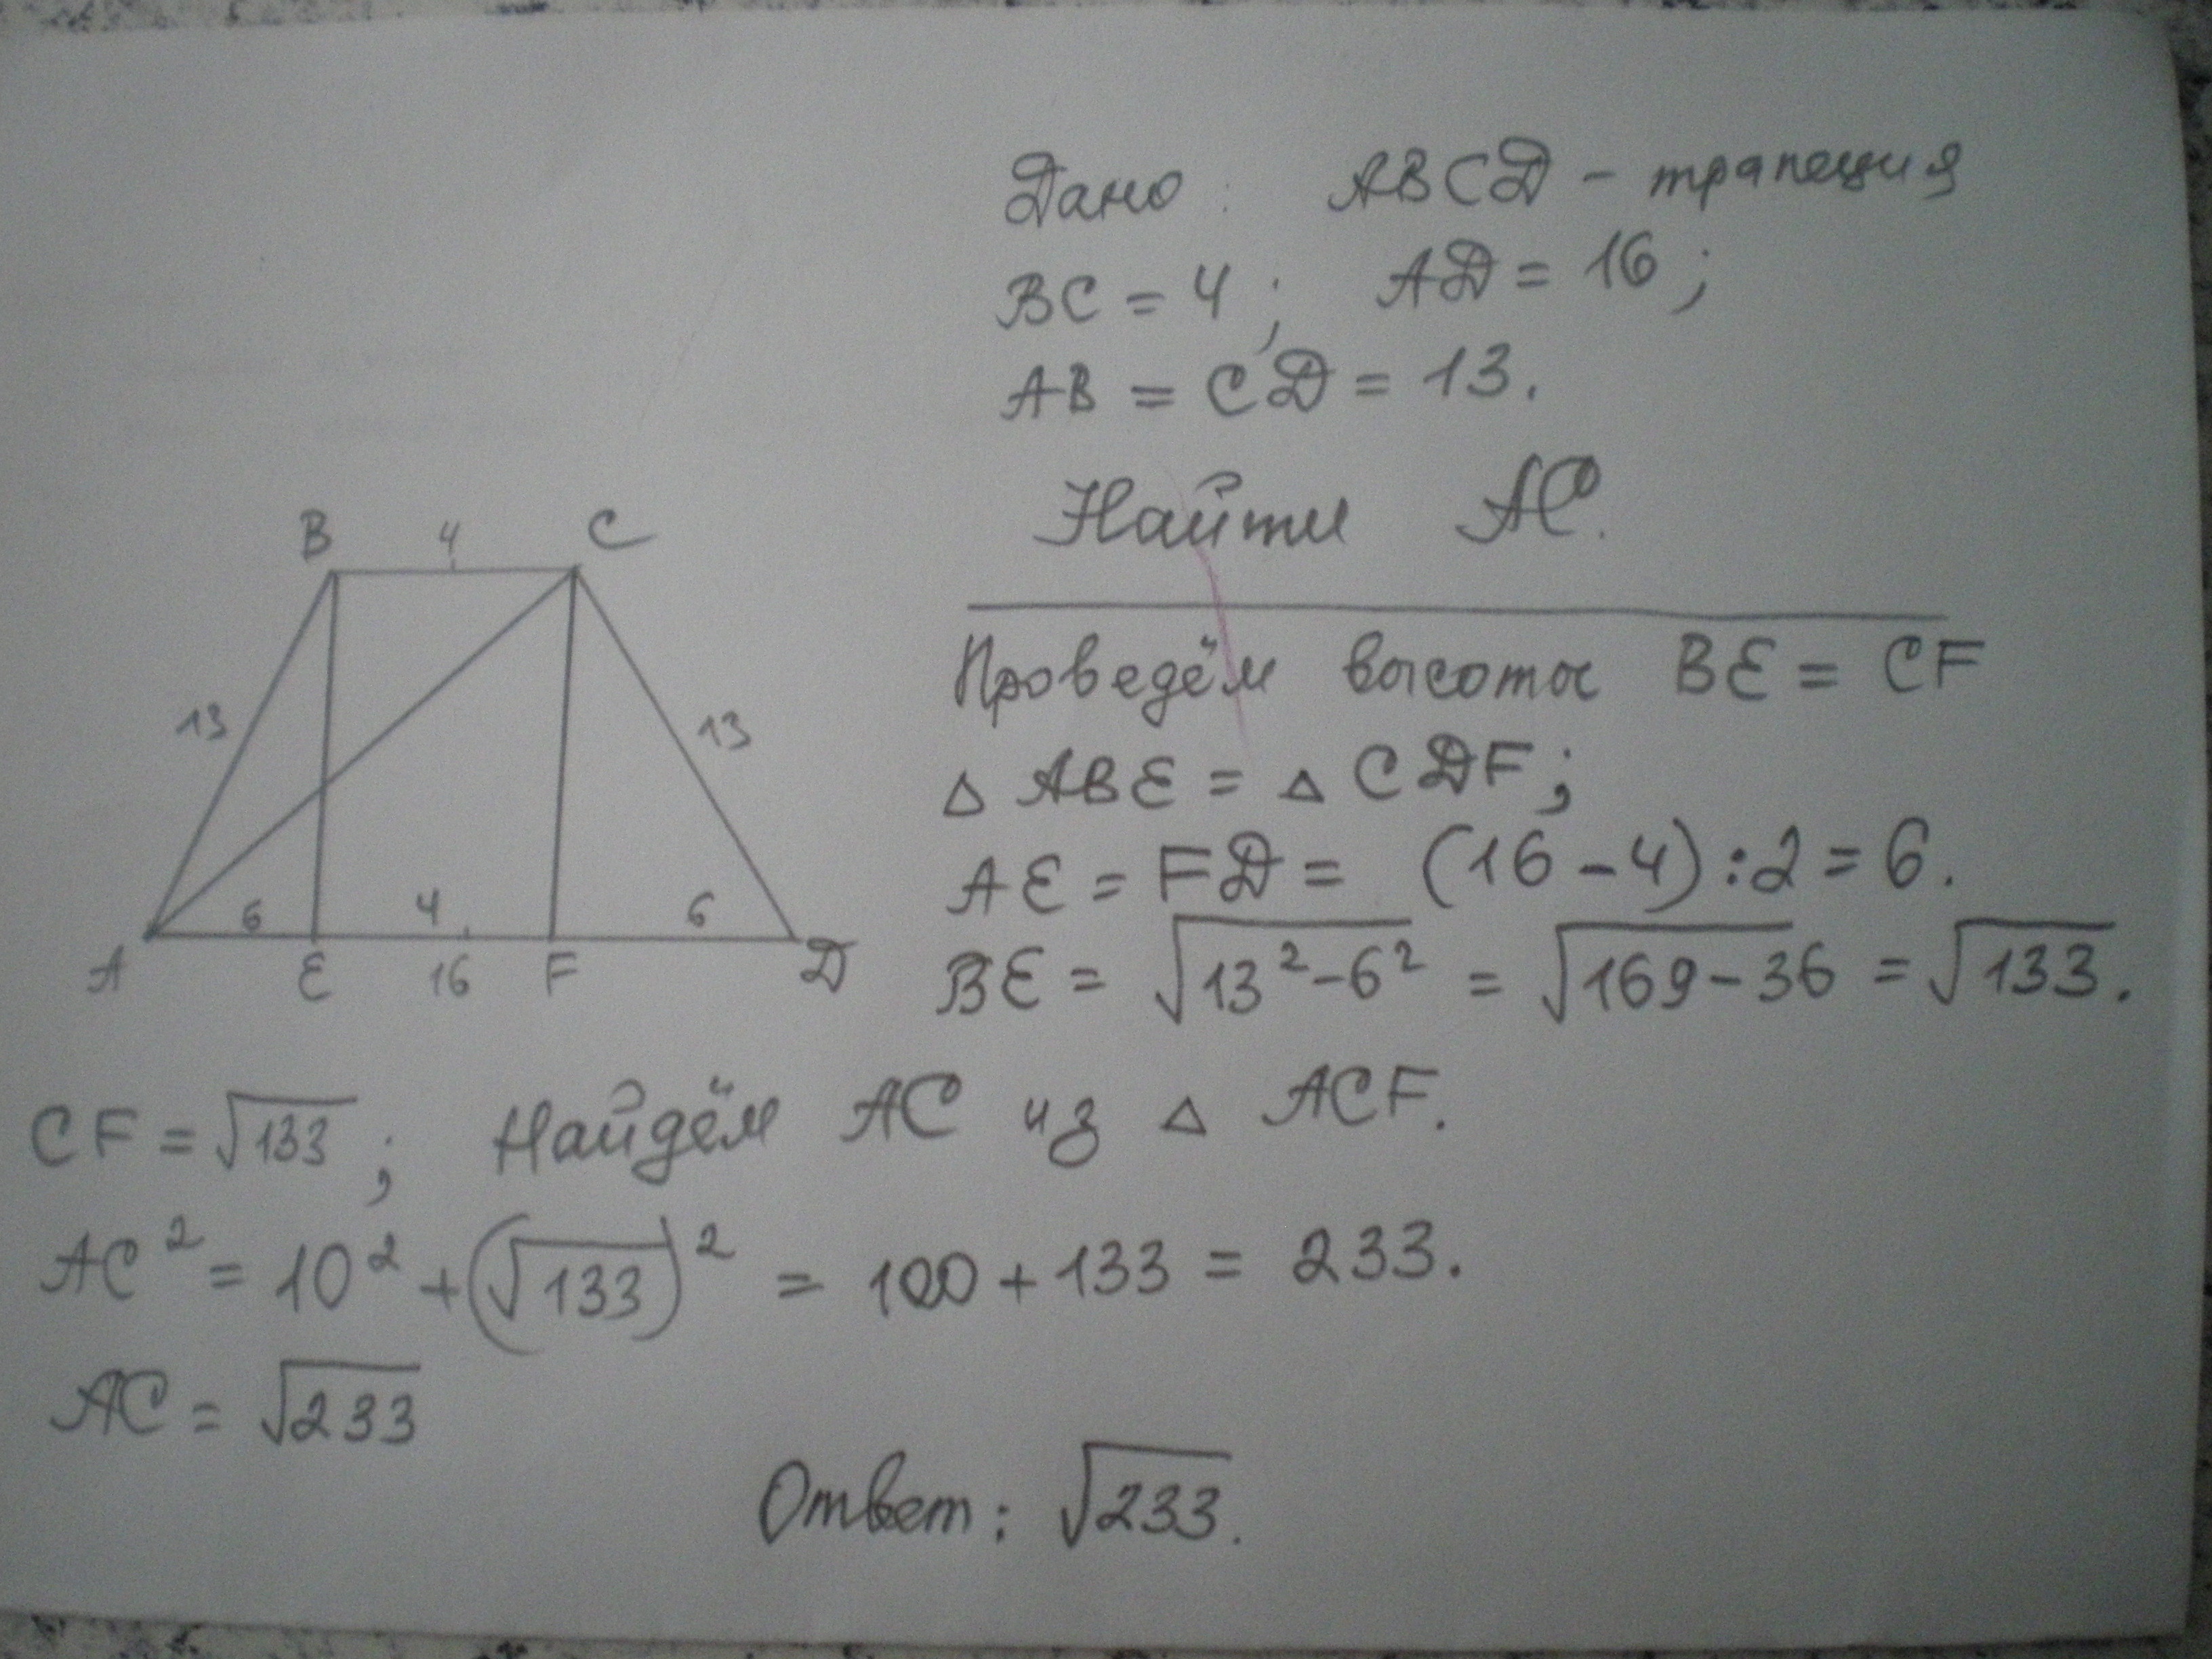 Дано: ABCD - трапеция
BC = 4; AD = 16;
AB = CD = 13.
Найти AC.
B 4 C
13 13
6 4 6
A E 16 F D
Проведём высоты BE = CF
△ ABE = △ CDF;
AE = FD = (16 - 4) : 2 = 6.
BE = √13² - 6² = √169 - 36 = √133.
CF = √133; Найдём AC из △ ACF.
AC² = 10² + (√133)² = 100 + 133 = 233.
AC = √233
Ответ: √233.